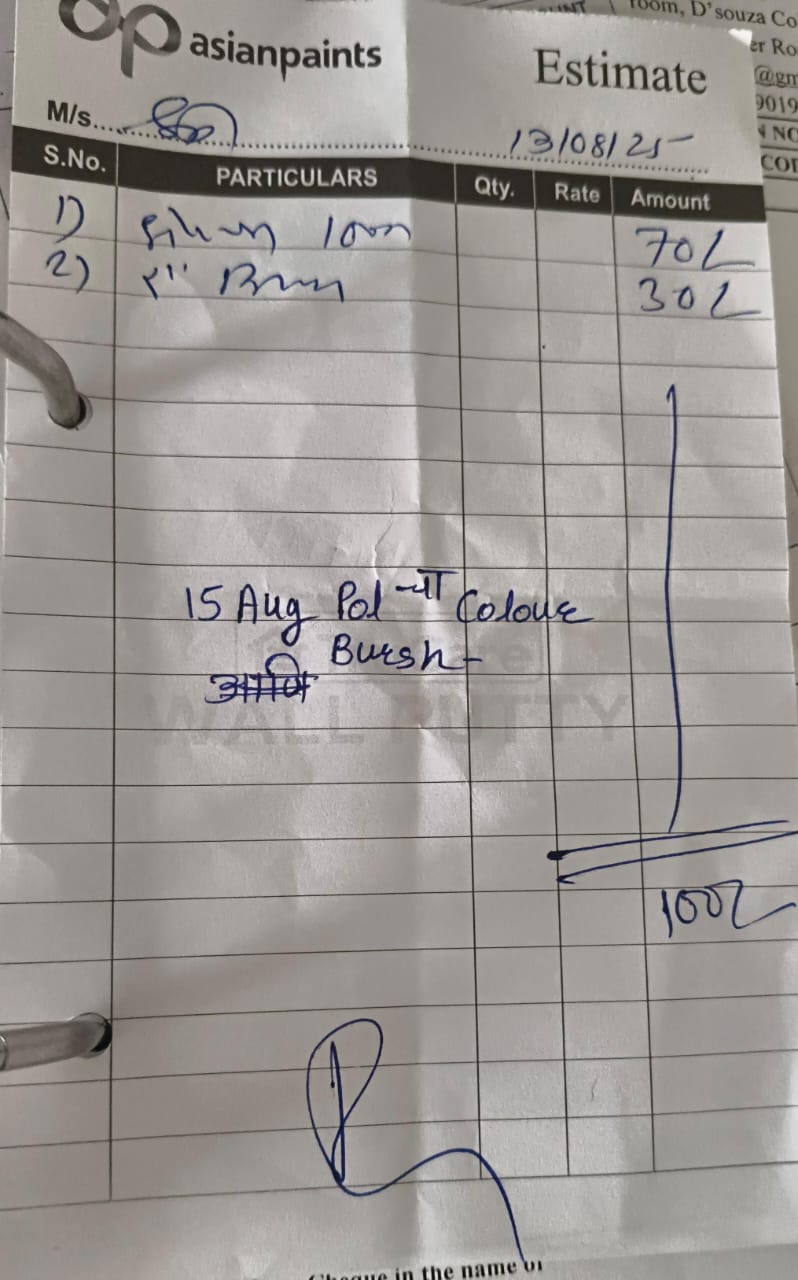 room, D'souza Co
er Ro
asianpaints
Estimate
@gm
9019
M/s.
13/08/25
S.No. PARTICULARS Qty. Rate Amount
1) 100 70/-
2) 30/-
15 Aug Pol च्या Colour
Bursh -
आणि
WALL PUTTY
100/-
Cheque in the name of